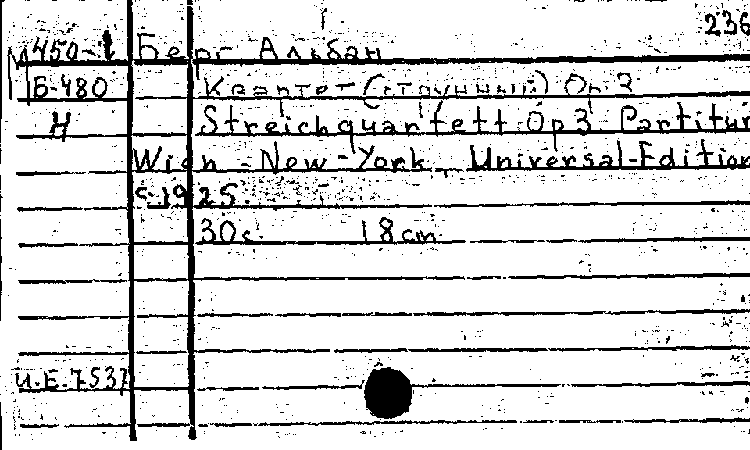 236
М450-1 Берг Альбан
Б-480 Квартет (струнный) Op. 3
Н Streichquartett Op 3 Partitur
Wien - New-York, Universal-Edition
c-1925.
30c. 18cm.
U.E.7537